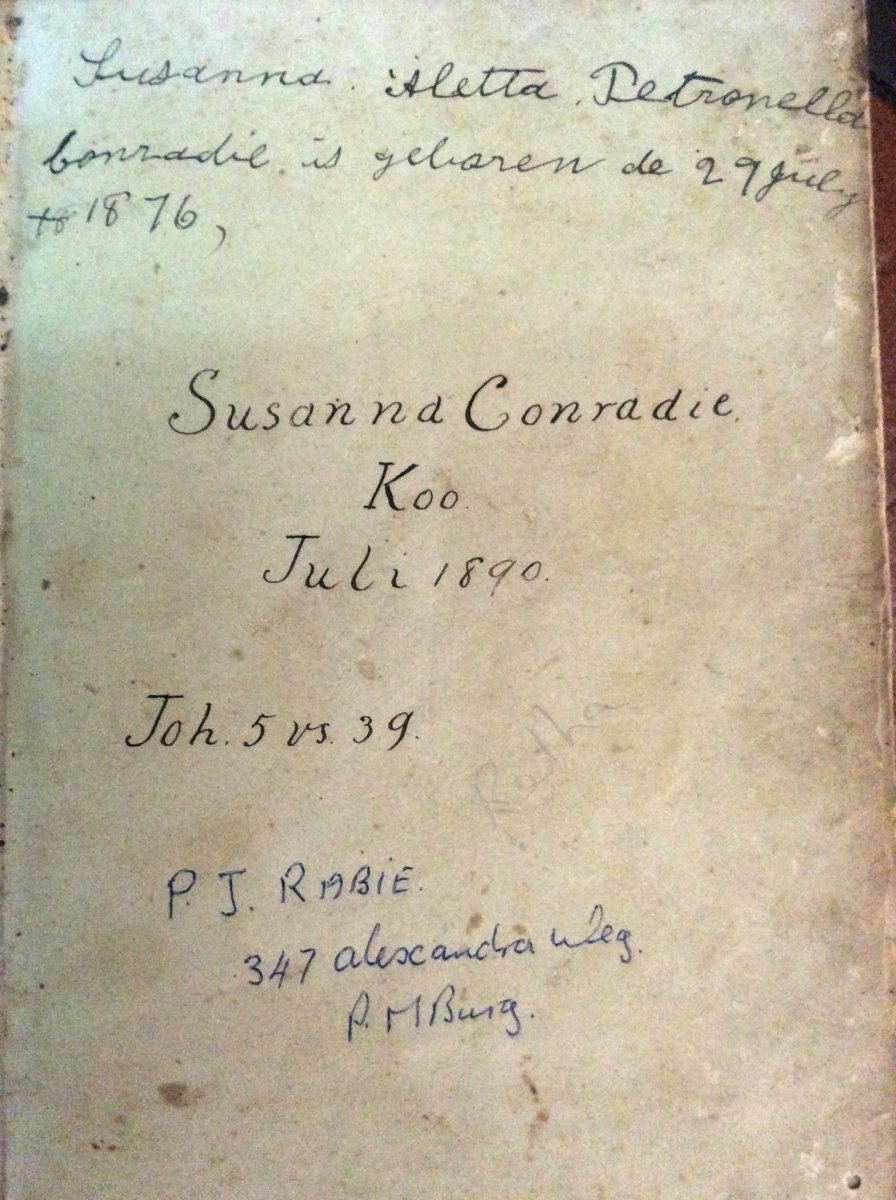 Susanna Aletta Petronella
Conradie is geboren de 29 july
18 1876,
Susanna Conradie.
Koo.
Juli 1890.
Joh. 5 vs. 39.
Retha
P. J. RABIE.
347 alexandra weg.
P. M Burg.